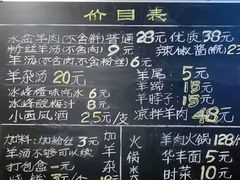 价目表
水盆羊肉(不含饼)普通28元 优质38元
粉丝羊汤(不含肉)9元 辣椒酱(瓶)
羊汤(不含肉不含粉丝)6元
羊杂汤20元 羊尾:5元
冰峰橙味汽水6元 羊蹄:15元
冰峰酸梅汁8元 羊脖子:15元
小西凤酒25元/皮 凉拌羊肉48元
加料:加粉丝3元 羊肉火锅128元
羊汤不够可以续 华丰面5元
打包盒一元 时菜10元
火锅